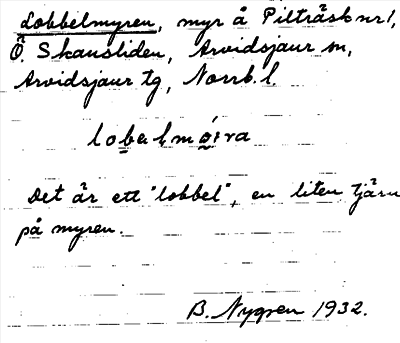 Lobbelmyren, myr å Pilträsk nr 1,
Ö. Skausliden, Arvidsjaur sn,
Arvidsjaur tg, Norrb. l.
Det är ett "lobbel", en liten tjärn
på myren.
B. Nygren 1932.